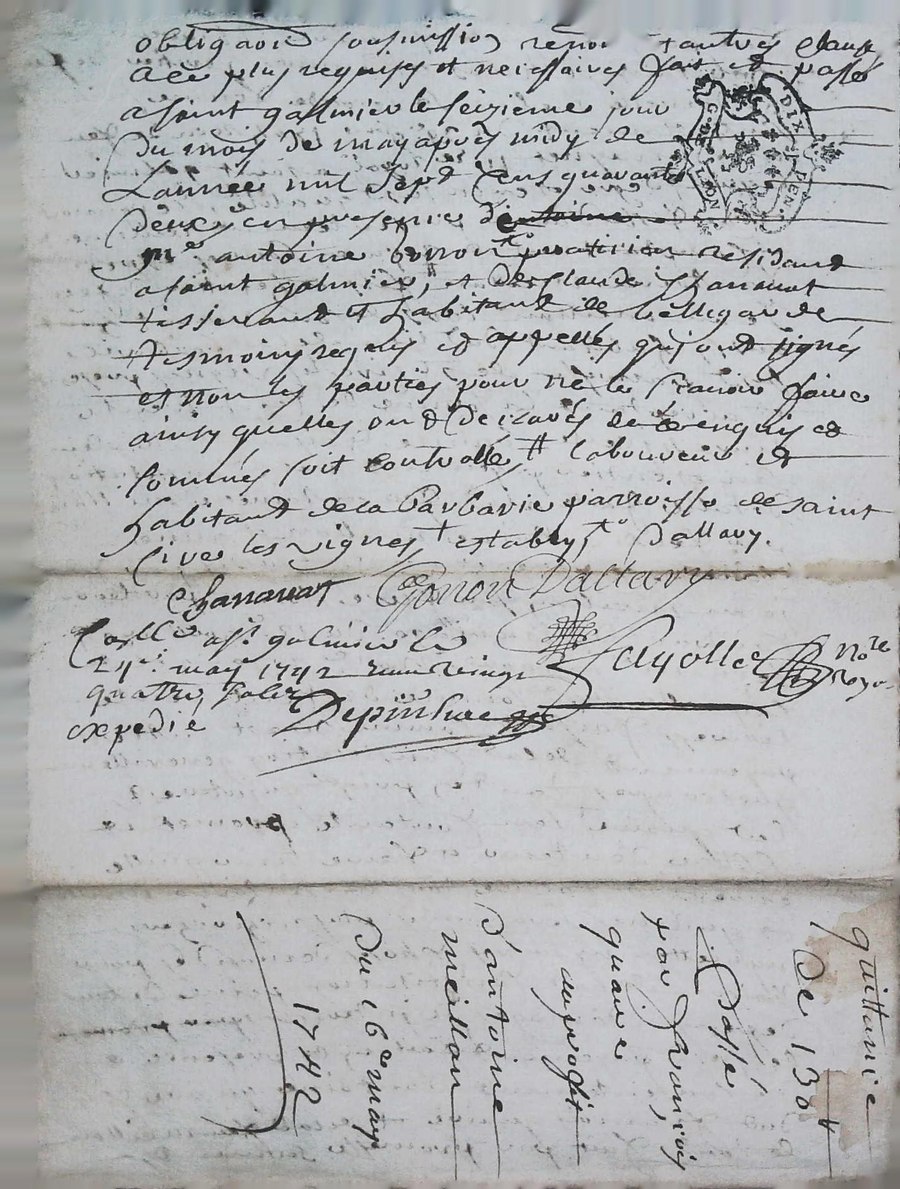 obligaōn soumission renon + autres clause
a ce plus requises et necessaires fait et passé
a saint galmier le seizieme jour
du mois de may apres midy de
Lannée mil sept cens quarante
deux en presence d'antoine
me antoine praticien residant
a saint galmier, et de Claude Chanavat
tisserand et habitant de bellegarde
tesmoins requis et appellés qui ont signés
et non les parties pour ne le scavoir faire
ainsy quelles ont declarés de ce enquis et
sommés soit controllé # laboureur et
habitant de la Barbarie parroisse de saint
Cire les vignes + estably Dallary.
Chanavat Gonon Dallary
Coll a st galmier le
24e may 1742 vingt
quatre sols
expedié Depinhac
Fayolle nore
royal
DIX DEN
G. DE LYON
quittance
De 130 #
Passé
par François
quare
au profit
d'antoine
meillan
Du 16e may
1742